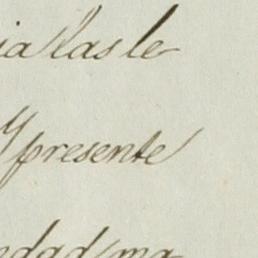 ia las le
Y presente
edad, ma